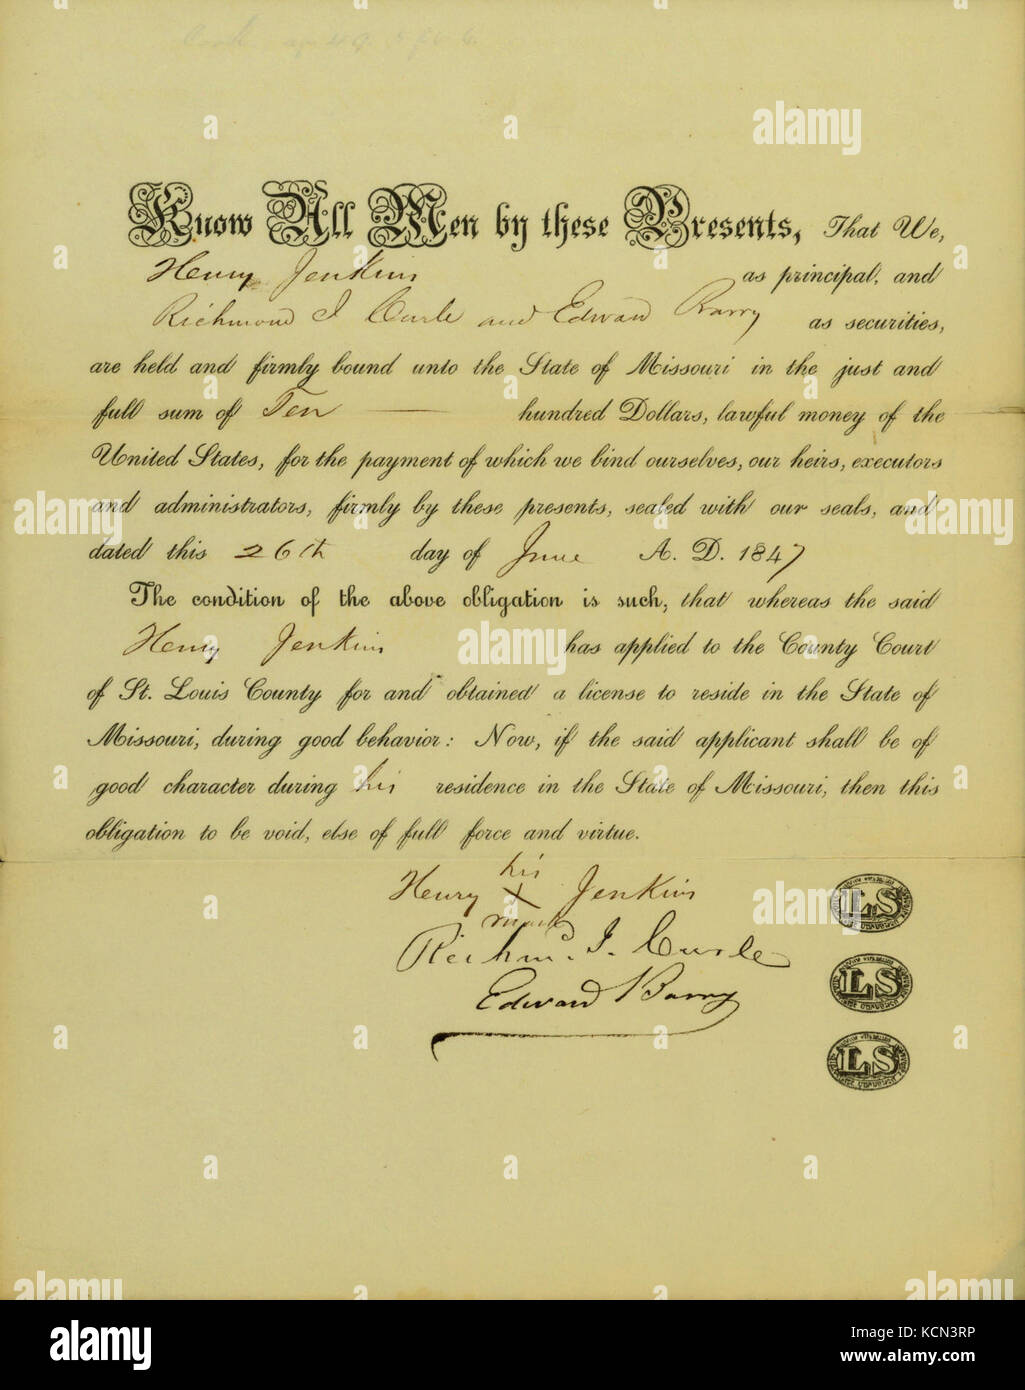 Know All Men by these Presents, That We,
Henry Jenkins as principal, and
Richmond J Curle and Edward Barry as securities,
are held and firmly bound unto the State of Missouri in the just and
full sum of Ten — hundred Dollars, lawful money of the
United States, for the payment of which we bind ourselves, our heirs, executors
and administrators, firmly by these presents, sealed with our seals, and
dated this 26th day of June A. D. 1847
The condition of the above obligation is such, that whereas the said
Henry Jenkins has applied to the County Court
of St. Louis County for and obtained a license to reside in the State of
Missouri, during good behavior: Now, if the said applicant shall be of
good character during his residence in the State of Missouri, then this
obligation to be void, else of full force and virtue.
his
Henry X Jenkins LS
mark
Richmd. J. Curle LS
Edward Barry LS
alamy
alamy
Image ID: KCN3RP
www.alamy.com